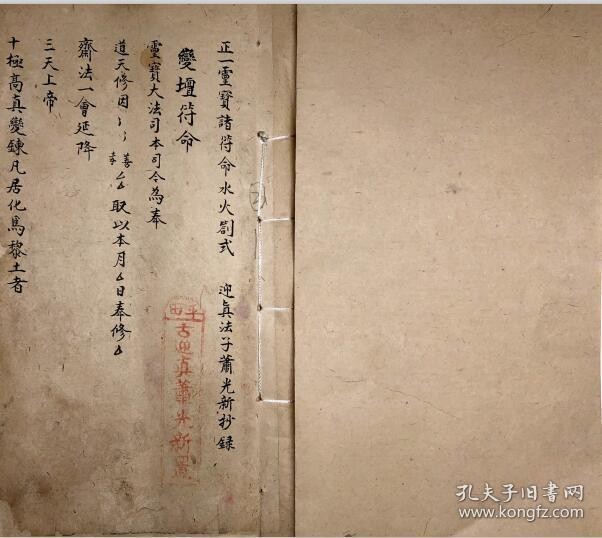 正一靈寳諸符命水火劄式　迎真法子蕭光新抄錄
變壇符命
靈寳大法司本司令為奉
道天修因㇏㇏善孝厶厶取以本月厶日奉修厶
齋法一會延降
三天上帝
十極高真變鍊凡居化為黎土者
古迎真蕭光新置
孔夫子旧书网
www.kongfz.com